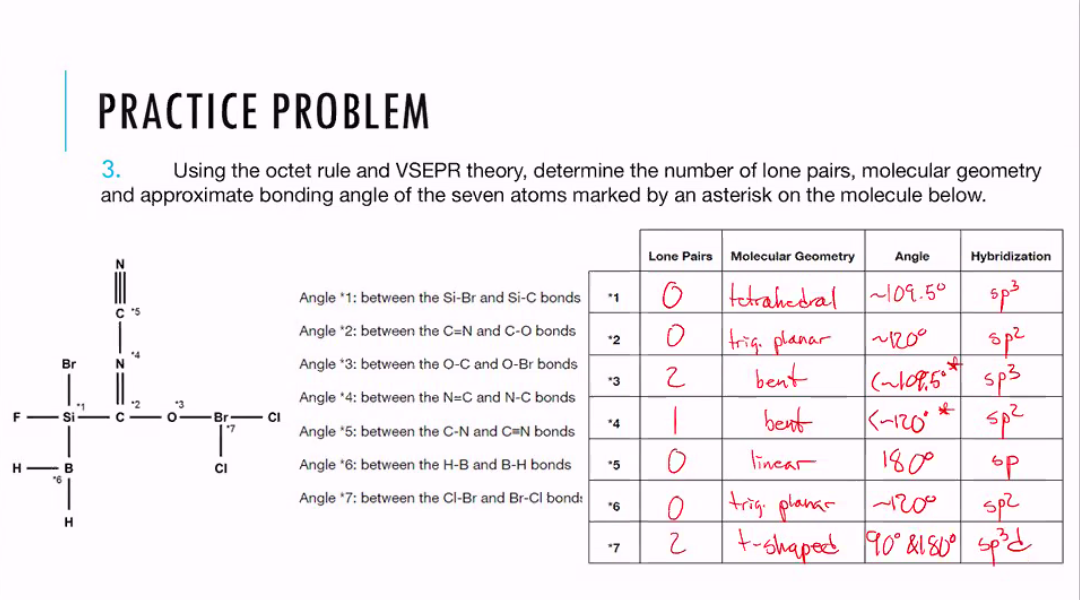 PRACTICE PROBLEM
3. Using the octet rule and VSEPR theory, determine the number of lone pairs, molecular geometry
and approximate bonding angle of the seven atoms marked by an asterisk on the molecule below.
N
C *5
*4
Br N
*1 *2 *3
F Si C O Br Cl
*7
H B Cl
*6
H
Angle *1: between the Si-Br and Si-C bonds
Angle *2: between the C=N and C-O bonds
Angle *3: between the O-C and O-Br bonds
Angle *4: between the N=C and N-C bonds
Angle *5: between the C-N and C≡N bonds
Angle *6: between the H-B and B-H bonds
Angle *7: between the Cl-Br and Br-Cl bonds
Lone Pairs Molecular Geometry Angle Hybridization
*1 0 tetrahedral ~109.5° sp³
*2 0 trig. planar ~120° sp²
*3 2 bent <~109.5° * sp³
*4 1 bent <~120° * sp²
*5 0 linear 180° sp
*6 0 trig. planar ~120° sp²
*7 2 t-shaped 90° &180° sp³d